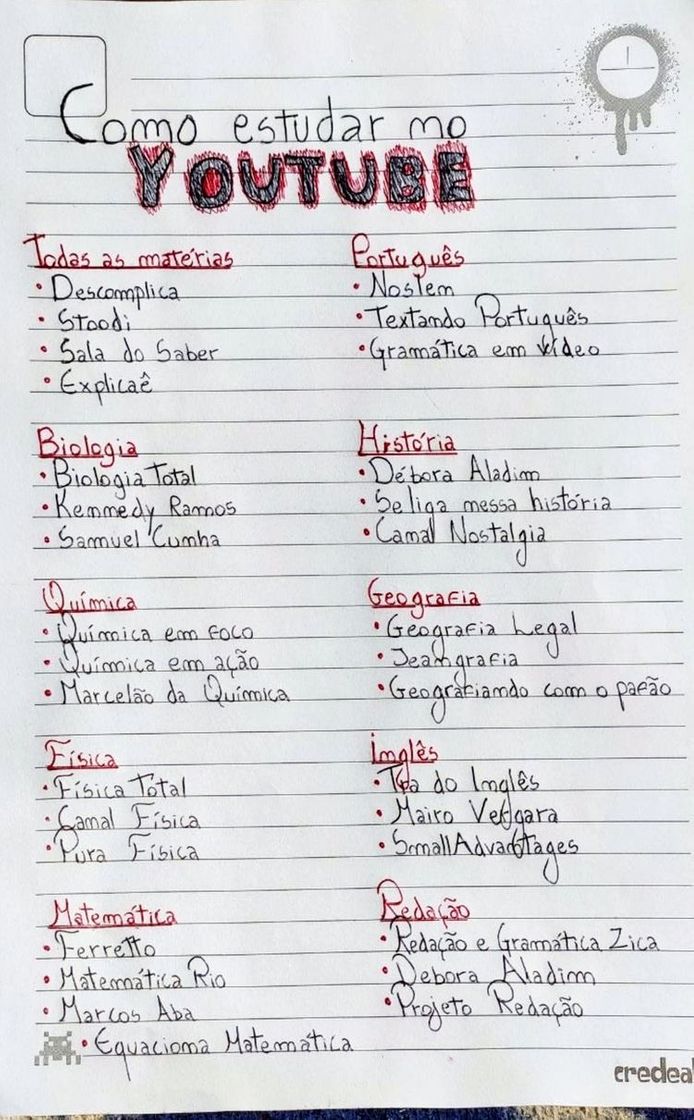 Como estudar no
YOUTUBE
Todas as matérias
• Descomplica
• Stoodi
• Sala do Saber
• Explicaê
Português
• Noslem
• Textando Português
• Gramática em vídeo
Biologia
• Biologia Total
• Kennedy Ramos
• Samuel Cunha
História
• Débora Aladim
• Se liga nessa história
• Canal Nostalgia
Química
• Química em foco
• Química em ação
• Marcelão da Química
Geografia
• Geografia Legal
• Jeangrafia
• Geografiando com o pafão
Física
• Física Total
• Canal Física
• Pura Física
Inglês
• Tia do Inglês
• Mairo Vergara
• SmallAdvantages
Matemática
• Ferretto
• Matemática Rio
• Marcos Aba
• Equaciona Matemática
Redação
• Redação e Gramática Zica
• Debora Aladim
• Projeto Redação
credeal